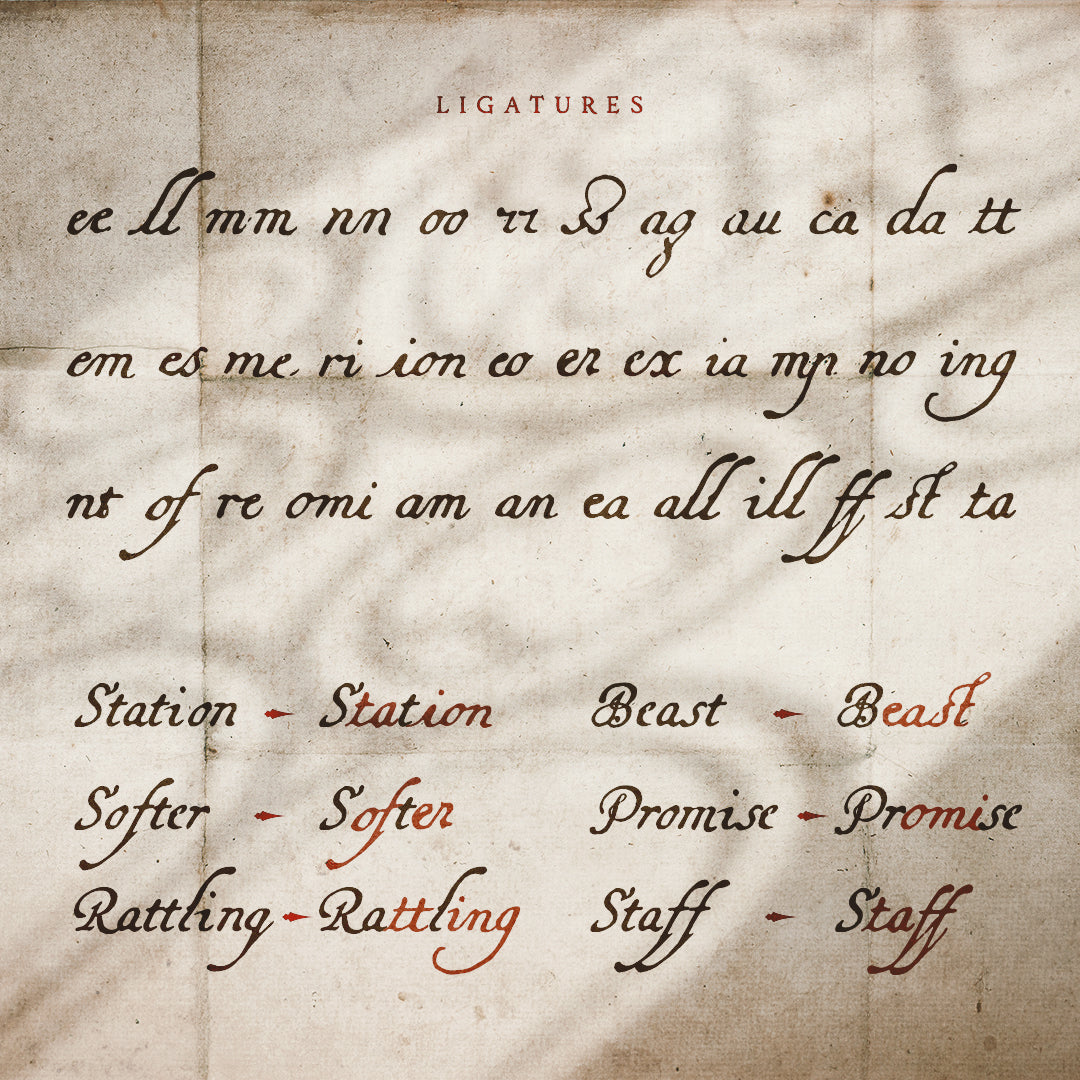 LIGATURES
ee ll mm nn oo rr ss ag au ca da tt
em es me ri ion eo er ex ia mp no ing
nt of re omi am an ea all ill ff st ta
Station Station Beast Beast
Softer Softer Promise Promise
Rattling Rattling Staff Staff